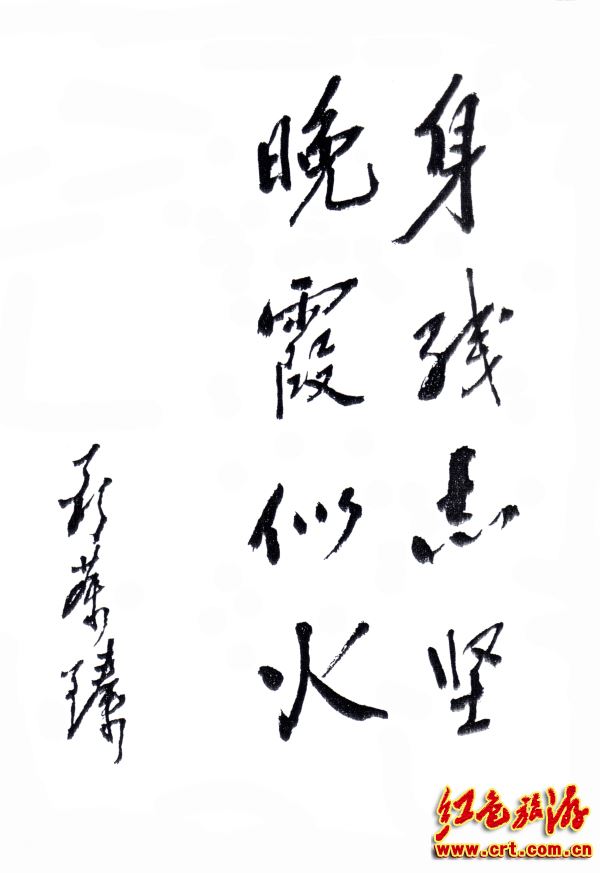 身残志坚
晚霞似火
聂荣臻
红色旅游
www.crt.com.cn